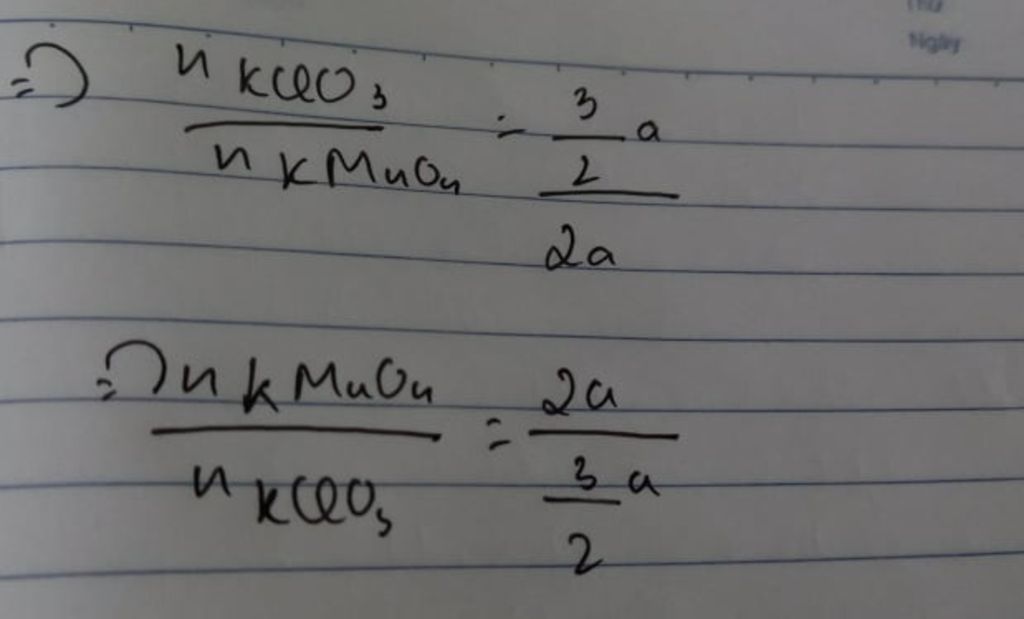 Thứ
Ngày
=> n KClO₃ / n KMnO₄ = (3/2 a) / 2a
=> n KMnO₄ / n KClO₃ = 2a / (3/2 a)